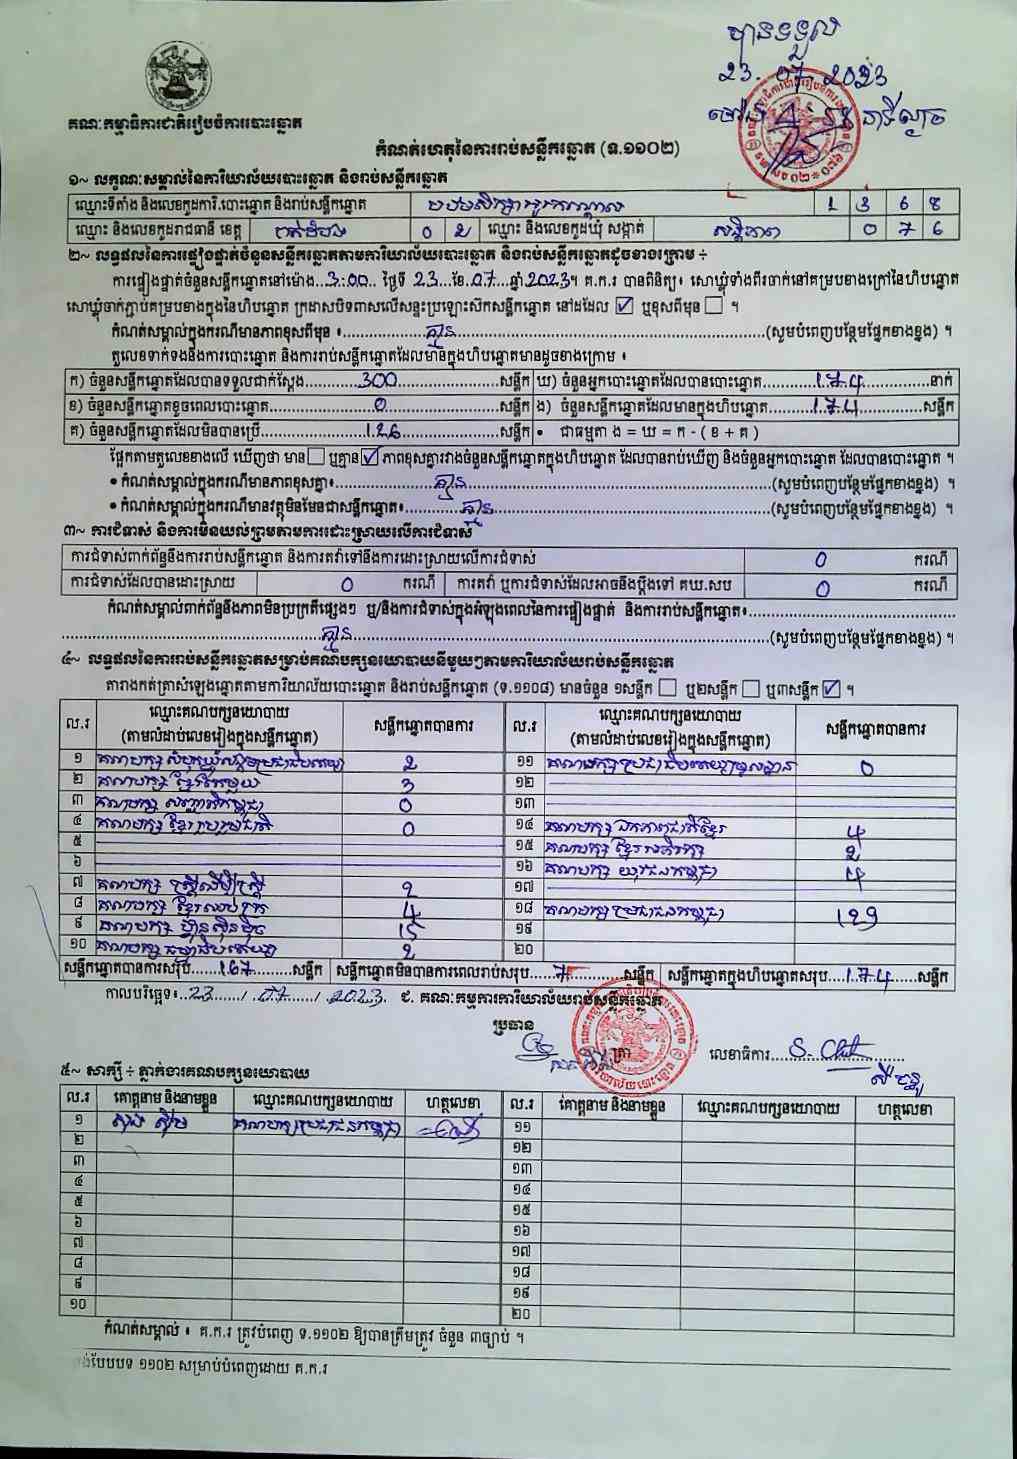 បានទទួល
23. 07. 2023
គណៈកម្មាធិការជាតិរៀបចំការបោះឆ្នោត
កំណត់ហេតុនៃការរាប់សន្លឹកឆ្នោត (ទ.១១០២)
១~ លក្ខណៈសម្គាល់នៃការិយាល័យបោះឆ្នោត និងរាប់សន្លឹកឆ្នោត
ឈ្មោះទីតាំង និងលេខកូដការិ.បោះឆ្នោត និងរាប់សន្លឹកឆ្នោត 1 3 6 8
ឈ្មោះ និងលេខកូដរាជធានី ខេត្ត បាត់ដំបង 0 2 ឈ្មោះ និងលេខកូដឃុំ សង្កាត់ សន្តិភាព 0 7 6
២~ លទ្ធផលនៃការផ្ទៀងផ្ទាត់ចំនួនសន្លឹកឆ្នោតតាមការិយាល័យបោះឆ្នោត និងរាប់សន្លឹកឆ្នោតដូចខាងក្រោម ÷
ការផ្ទៀងផ្ទាត់ចំនួនសន្លឹកឆ្នោតនៅម៉ោង..3:00.. ថ្ងៃទី 23..ខែ.07...ឆ្នាំ 2023។ គ.ក.រ បានពិនិត្យ៖ សោឃ្លុំទាំងពីរចាក់នៅគម្របខាងក្រៅនៃហិបឆ្នោត
សោឃ្លុំចាក់ភ្ជាប់គម្របខាងក្នុងនៃហិបឆ្នោត ក្រដាសបិទពាសលើសន្ទះប្រឡោះស៊កសន្លឹកឆ្នោត នៅដដែល ☑ ឬខុសពីមុន ☐ ។
កំណត់សម្គាល់ក្នុងករណីមានភាពខុសពីមុន ៖ គ្មាន (សូមបំពេញបន្ថែមផ្នែកខាងខ្នង) ។
តួលេខទាក់ទងនឹងការបោះឆ្នោត និងការរាប់សន្លឹកឆ្នោតដែលមានក្នុងហិបឆ្នោតមានដូចខាងក្រោម ៖
ក) ចំនួនសន្លឹកឆ្នោតដែលបានទទួលជាក់ស្តែង 300 សន្លឹក ឃ) ចំនួនអ្នកបោះឆ្នោតដែលបានបោះឆ្នោត 174 នាក់
ខ) ចំនួនសន្លឹកឆ្នោតខូចពេលបោះឆ្នោត 0 សន្លឹក ង) ចំនួនសន្លឹកឆ្នោតដែលមានក្នុងហិបឆ្នោត 174 សន្លឹក
គ) ចំនួនសន្លឹកឆ្នោតដែលមិនបានប្រើ 126 សន្លឹក • ជាធម្មតា ង = ឃ = ក - ( ខ + គ )
ផ្អែកតាមតួលេខខាងលើ ឃើញថា មាន ☐ ឬគ្មាន ☑ ភាពខុសគ្នារវាងចំនួនសន្លឹកឆ្នោតក្នុងហិបឆ្នោត ដែលបានរាប់ឃើញ និងចំនួនអ្នកបោះឆ្នោត ដែលបានបោះឆ្នោត ។
• កំណត់សម្គាល់ក្នុងករណីមានភាពខុសគ្នា៖ គ្មាន (សូមបំពេញបន្ថែមផ្នែកខាងខ្នង) ។
• កំណត់សម្គាល់ក្នុងករណីមានវត្ថុមិនមែនជាសន្លឹកឆ្នោត៖ គ្មាន (សូមបំពេញបន្ថែមផ្នែកខាងខ្នង) ។
៣~ ការជំទាស់ និងការមិនយល់ព្រមតាមការដោះស្រាយលើការជំទាស់
ការជំទាស់ពាក់ព័ន្ធនឹងការរាប់សន្លឹកឆ្នោត និងការតវ៉ាទៅនឹងការដោះស្រាយលើការជំទាស់ 0 ករណី
ការជំទាស់ដែលបានដោះស្រាយ 0 ករណី ការតវ៉ា ឬការជំទាស់ដែលអាចនឹងប្តឹងទៅ គឃ.សប 0 ករណី
កំណត់សម្គាល់ពាក់ព័ន្ធនឹងភាពមិនប្រក្រតីផ្សេងៗ ឬ/និងការជំទាស់ក្នុងអំឡុងពេលនៃការផ្ទៀងផ្ទាត់ និងការរាប់សន្លឹកឆ្នោត៖
គ្មាន (សូមបំពេញបន្ថែមផ្នែកខាងខ្នង) ។
៤~ លទ្ធផលនៃការរាប់សន្លឹកឆ្នោតសម្រាប់គណបក្សនយោបាយនីមួយៗតាមការិយាល័យរាប់សន្លឹកឆ្នោត
តារាងកត់ត្រាសំឡេងឆ្នោតតាមការិយាល័យបោះឆ្នោត និងរាប់សន្លឹកឆ្នោត (ទ.១១០៨) មានចំនួន ១សន្លឹក ☐ ឬ២សន្លឹក ☐ ឬ៣សន្លឹក ☑ ។
ល.រ ឈ្មោះគណបក្សនយោបាយ (តាមលំដាប់លេខរៀងក្នុងសន្លឹកឆ្នោត) សន្លឹកឆ្នោតបានការ ល.រ ឈ្មោះគណបក្សនយោបាយ (តាមលំដាប់លេខរៀងក្នុងសន្លឹកឆ្នោត) សន្លឹកឆ្នោតបានការ
១ គណបក្ស 2 ១១ គណបក្សប្រជាធិបតេយ្យមូលដ្ឋាន 0
២ គណបក្ស ខ្មែរតែមួយ 3 ១២
៣ គណបក្ស កម្ពុជា 0 ១៣
៤ គណបក្ស ខ្មែររួបរួមជាតិ 0 ១៤ គណបក្ស ឯកភាពជាតិខ្មែរ 4
៥ ១៥ គណបក្ស ខ្មែរអភិរក្ស 2
៦ ១៦ គណបក្ស យុវជនកម្ពុជា 4
៧ គណបក្ស ស្ត្រីដើម្បីស្ត្រី 2 ១៧
៨ គណបក្ស ខ្មែរឈប់ក្រ 4 ១៨ គណបក្សប្រជាជនកម្ពុជា 129
៩ គណបក្ស ហ្វ៊ុនស៊ិនប៉ិច 15 ១៩
១០ គណបក្ស ធម្មាធិបតេយ្យ 2 ២០
សន្លឹកឆ្នោតបានការសរុប 167 សន្លឹក សន្លឹកឆ្នោតមិនបានការពេលរាប់សរុប 7 សន្លឹក សន្លឹកឆ្នោតក្នុងហិបឆ្នោតសរុប 174 សន្លឹក
កាលបរិច្ឆេទ៖ 23 / 07 / 2023 ជ. គណៈកម្មការការិយាល័យរាប់សន្លឹកឆ្នោត
ប្រធាន
ត្រា លេខាធិការ
៥~ សាក្សី ÷ ភ្នាក់ងារគណបក្សនយោបាយ
ល.រ គោត្តនាម និងនាមខ្លួន ឈ្មោះគណបក្សនយោបាយ ហត្ថលេខា ល.រ គោត្តនាម និងនាមខ្លួន ឈ្មោះគណបក្សនយោបាយ ហត្ថលេខា
១ គណបក្សប្រជាជនកម្ពុជា ១១
២ ១២
៣ ១៣
៤ ១៤
៥ ១៥
៦ ១៦
៧ ១៧
៨ ១៨
៩ ១៩
១០ ២០
កំណត់សម្គាល់ ៖ គ.ក.រ ត្រូវបំពេញ ទ.១១០២ ឱ្យបានត្រឹមត្រូវ ចំនួន ៣ច្បាប់ ។
បែបបទ ១១០២ សម្រាប់បំពេញដោយ គ.ក.រ